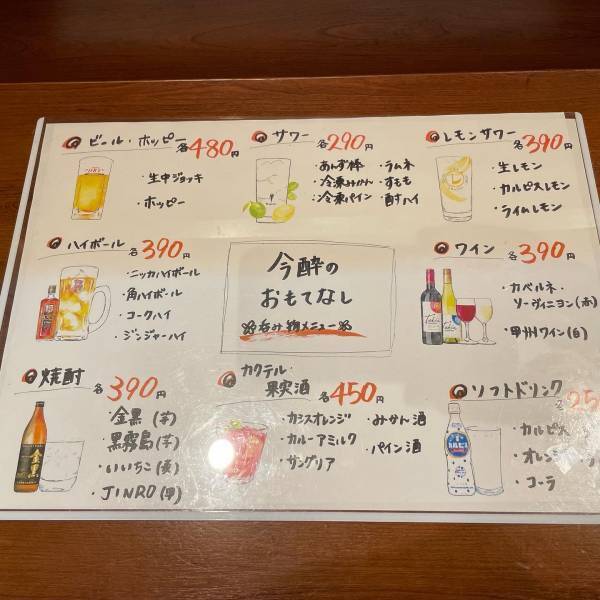 ビール・ホッピー 各480円
・生中ジョッキ
・ホッピー
サワー 各290円
・あんず棒 ・ラムネ
・冷凍みかん ・すもも
・冷凍パイン ・酎ハイ
レモンサワー 各390円
・生レモン
・カルピスレモン
・ライムレモン
ハイボール 各390円
・ニッカハイボール
・角ハイボール
・コークハイ
・ジンジャーハイ
今酔の
おもてなし
呑み物メニュー
ワイン 各390円
・カベルネ・
ソーヴィニヨン(赤)
・甲州ワイン(白)
焼酎 各390円
・金黒(芋)
・黒霧島(芋)
・いいちこ(麦)
・JINRO(甲)
カクテル
果実酒 各450円
・カシスオレンジ ・みかん酒
・カルーアミルク ・パイン酒
・サングリア
ソフトドリンク 各25
・カルピス
・オレン
・コーラ
金黒
カルピス